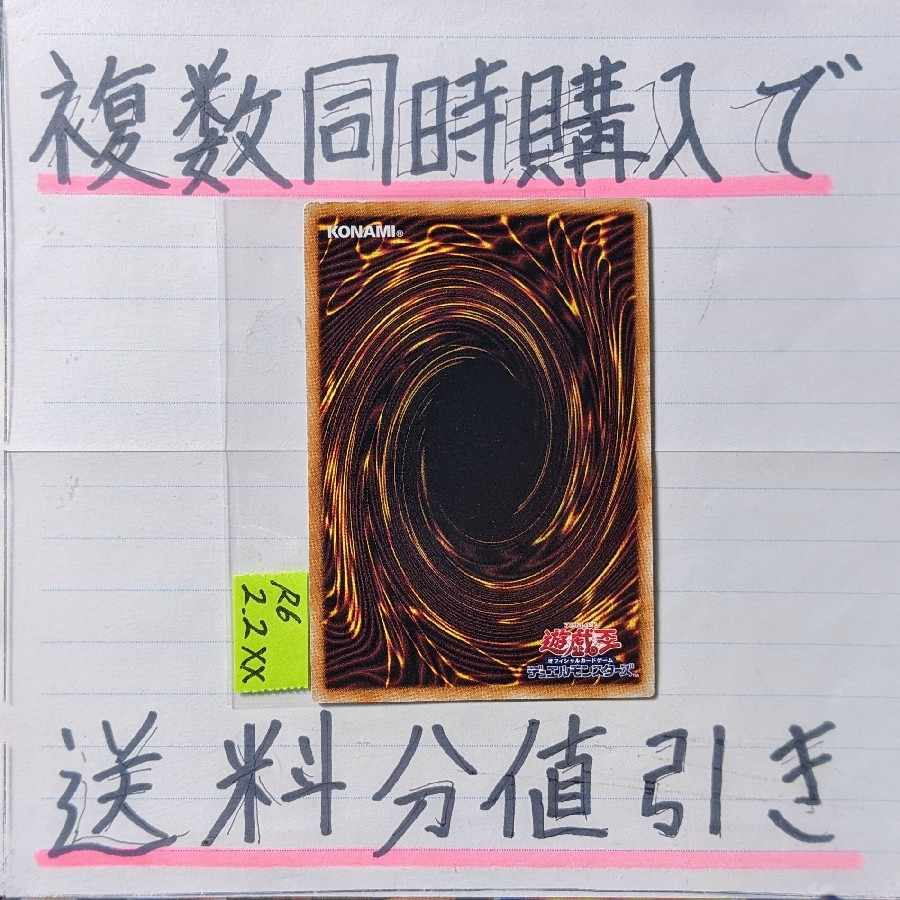 複数同時購入で
KONAMI®
R6
2.2XX
遊戯王
オフィシャルカードゲーム
デュエルモンスターズ
送料分値引き